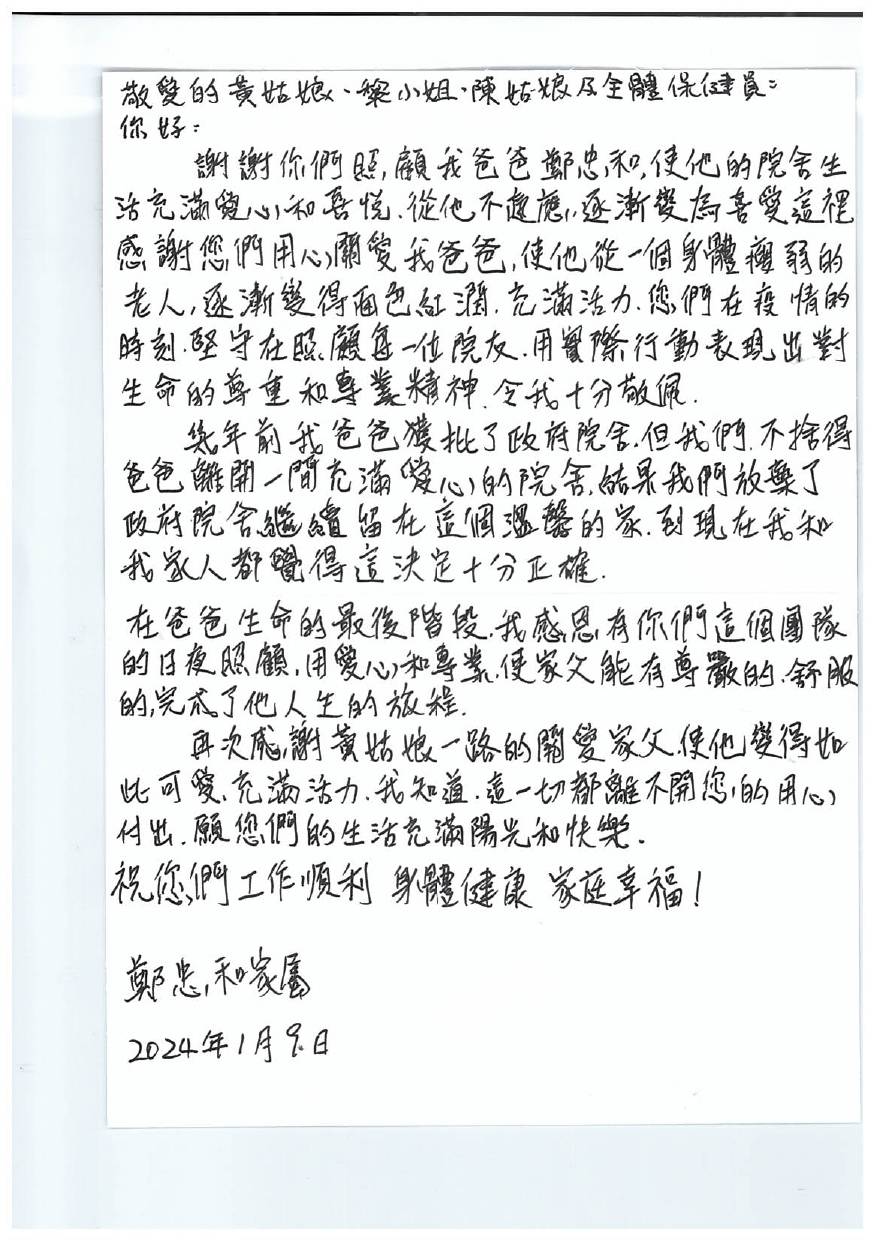 敬愛的黃姑娘、黎小姐、陳姑娘及全體保健員:
你好:
謝謝你們照顧我爸爸鄭忠和,使他的院舍生
活充滿愛心和喜悅.從他不適應,逐漸變為喜愛這裡
感謝您們用心關愛我爸爸,使他從一個身體瘦弱的
老人,逐漸變得面色紅潤.充滿活力.您們在疫情的
時刻.堅守在照顧每一位院友.用實際行動表現出對
生命的尊重和專業精神.令我十分敬佩.
幾年前我爸爸獲批了政府院舍.但我們.不捨得
爸爸離開一間充滿愛心的院舍.結果我們放棄了
政府院舍繼續留在這個溫馨的家.到現在我和
我家人都覺得這決定十分正確.
在爸爸生命的最後階段.我感恩有你們這個團隊
的日夜照顧.用愛心和專業.使家父能有尊嚴的.舒服
的,完成了他人生的旅程.
再次感謝黃姑娘一路的關愛家父.使他變得如
此可愛.充滿活力.我知道.這一切都離不開您的用心
付出.願您們的生活充滿陽光和快樂.
祝您們工作順利 身體健康 家庭幸福!
鄭忠和家屬
2024年1月9日